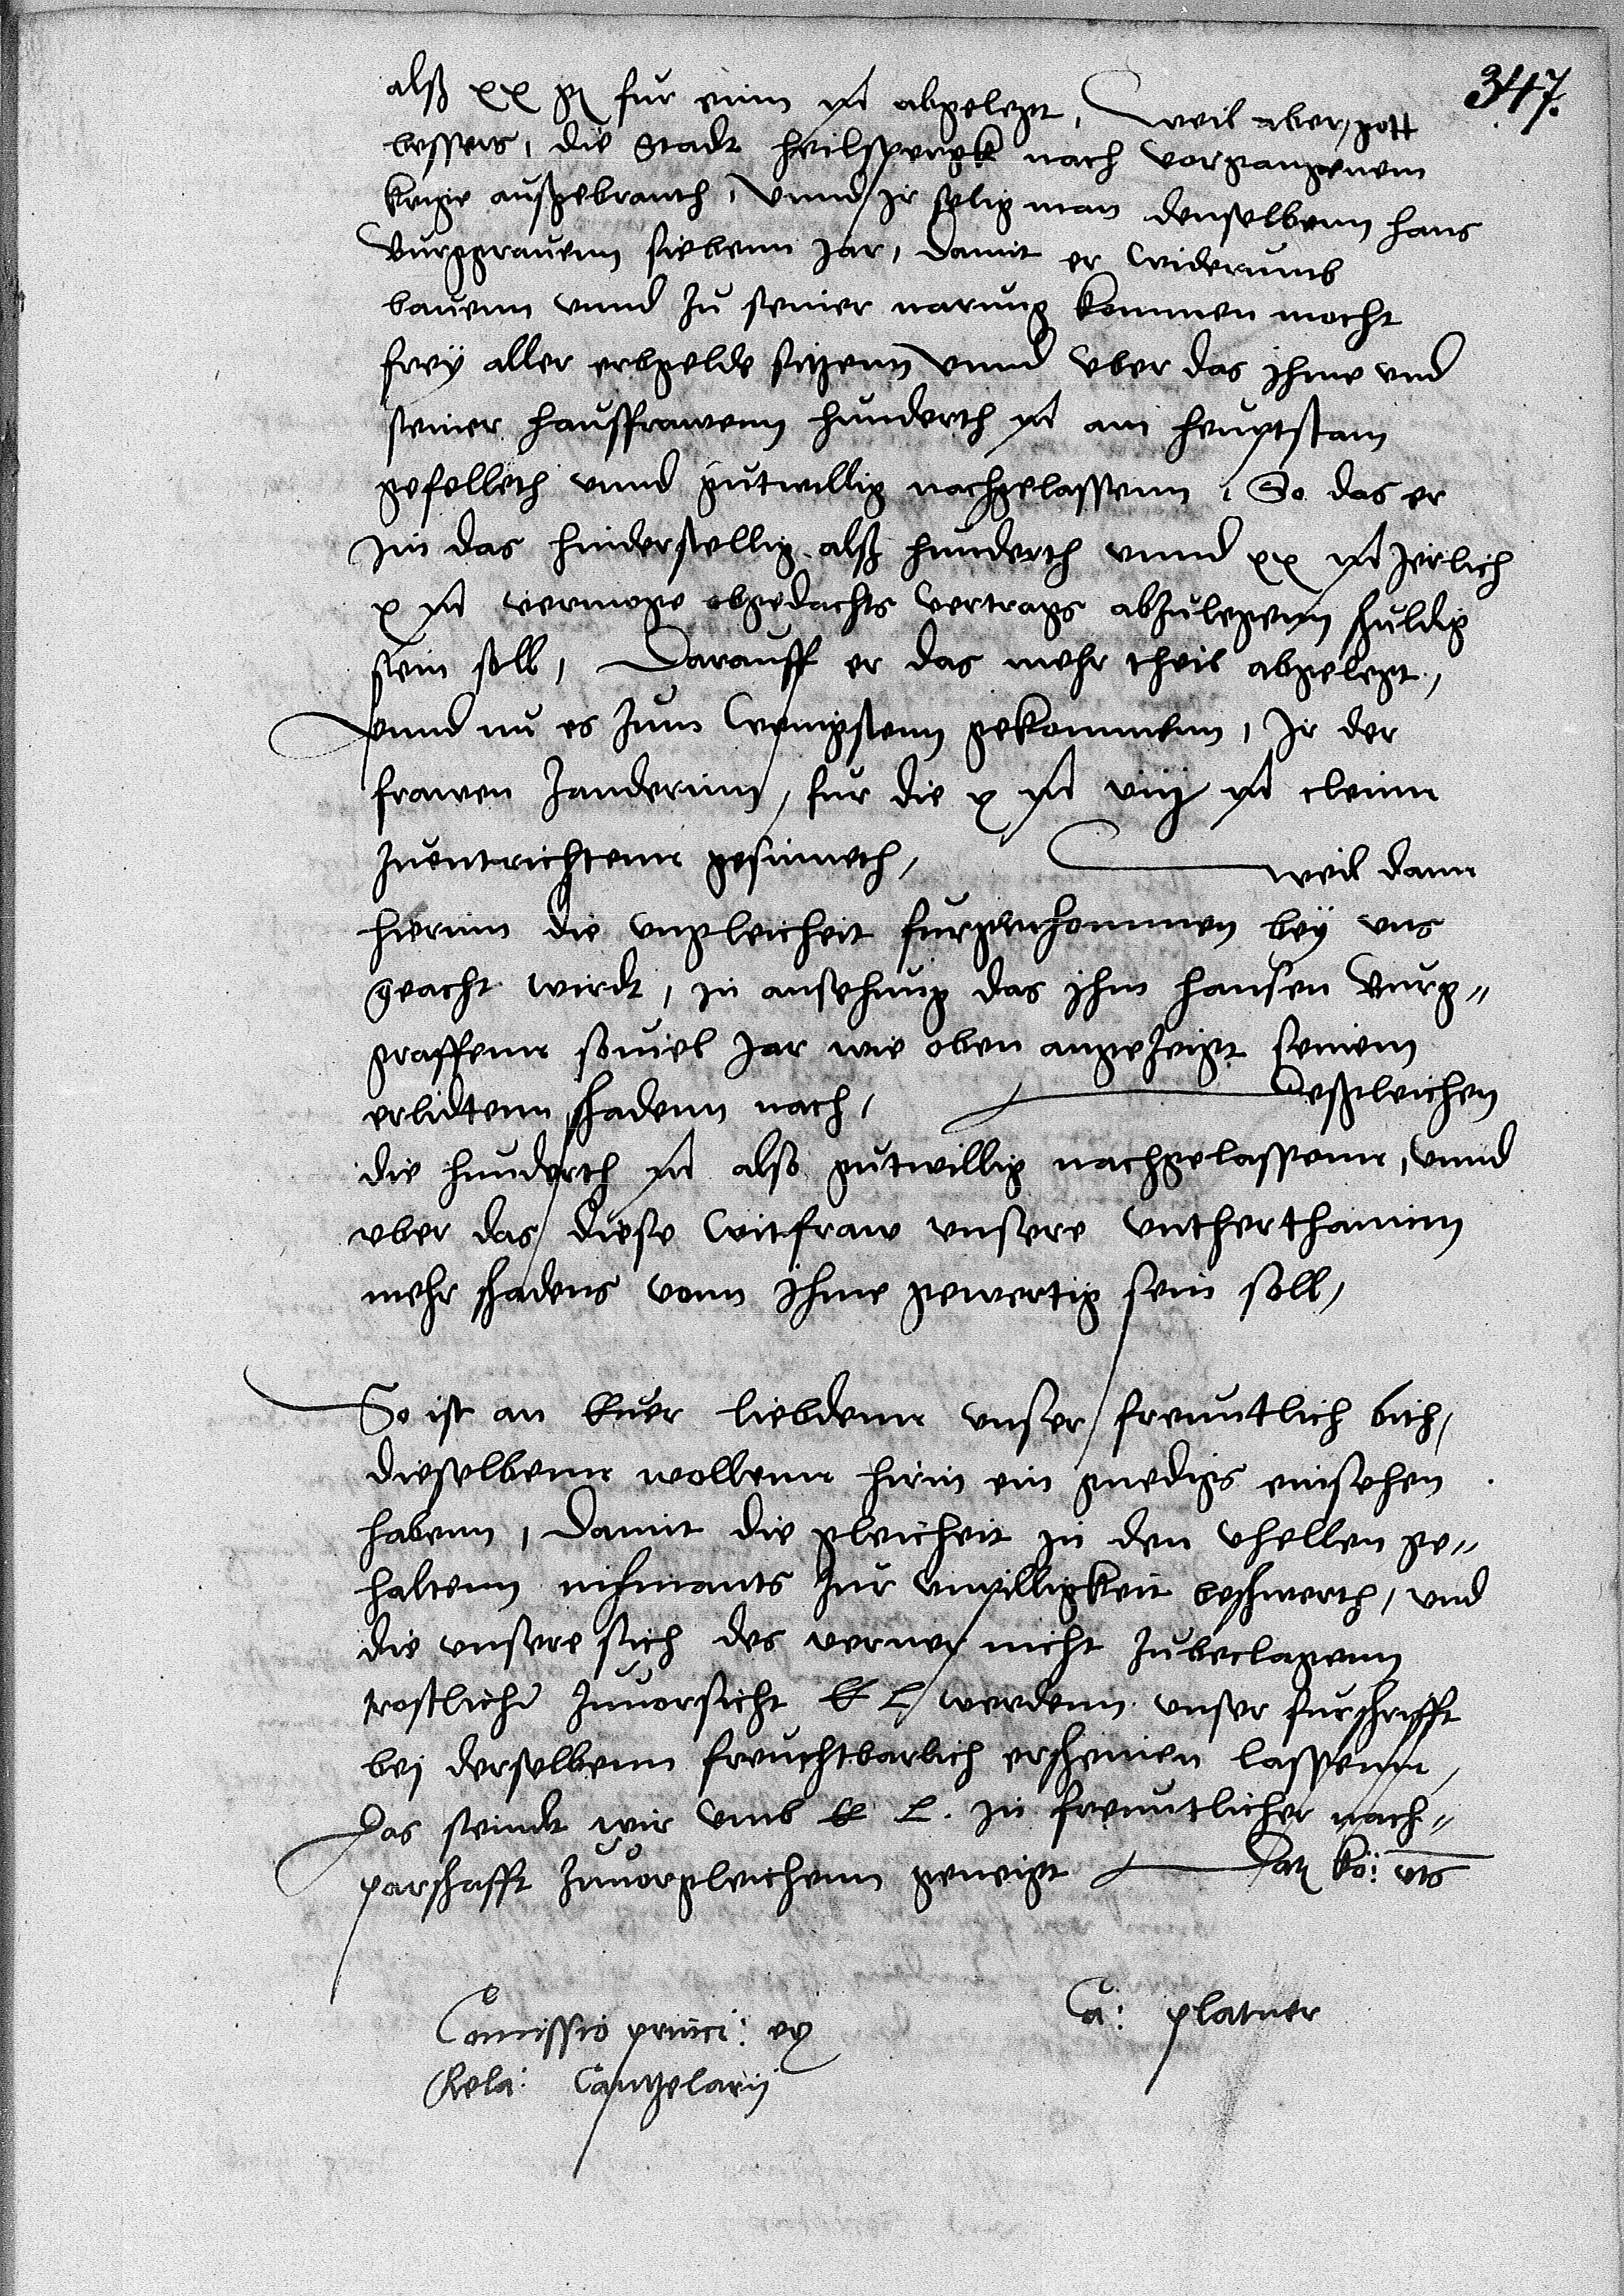 347.
alß xx gr fur einn mr abgelegt, Weil aber gott
bessers, die Stadt Heilspergk nach vorgangenem
krige außgebranth, Vnnd jr selig man denselbenn Hans
Burggrauenn siebenn jar, damit er widerumb
bauenn vnnd zu seiner narung kommen mocht
frey aller erbgelde sitzenn vnnd vber das jhme vnd
seiner hausfrawenn hunderth mr am heuptstam
gefelleth vnnd gutwillig nachgelassenn, So das er
jm das hinderstellig alß hunderth vnnd xx mr jerlich
x mr vermoge obgedachts vertrags abzulegenn schuldig
sein soll, Darauff er das mehr theil abgelegt,
Vnnd nu es zum wenigstenn gekommenn, Jr der
frawen Zanderinn, fur die x mr viij mr cleinn
zuentrichtenn gesinneth, Weil dann
hierinn die vngleicheit furgenhommen bey vns
geacht wirdt, in ansehung das jhm Hansen Burg„
graffenn souiel jar wie oben angezeigt seinem
erlidtenn schadenn nach, Desgleichen
die hunderth mr also gutwillig nachgelassenn, vnnd
vber das diese witfraw vnsere vntherthanin
mehr schadens vonn jhme gewertig sein soll,
So ist an Euer liebdenn vnser freuntlich bith,
dieselbenn wollenn hirin ein gnedigs einsehen
habenn, Damit die gleicheit in den vhellen ge„
haltenn nihmants zur vnwilligkeit beschwerth, vnd
die vnsere sich des verner nicht zubeclagenn
trostlicher zuuorsicht E L werdenn vnser furschrifft
bei derselbenn freuchtbarlich erscheinen lassenn,
Das seindt wir vmb E L. in freuntlicher nach„
parschafft zuuorgleichenn geneigt Datz Kö: vts
Comissio princi: ex
Rela: Cantzelarij
Ca: Platner